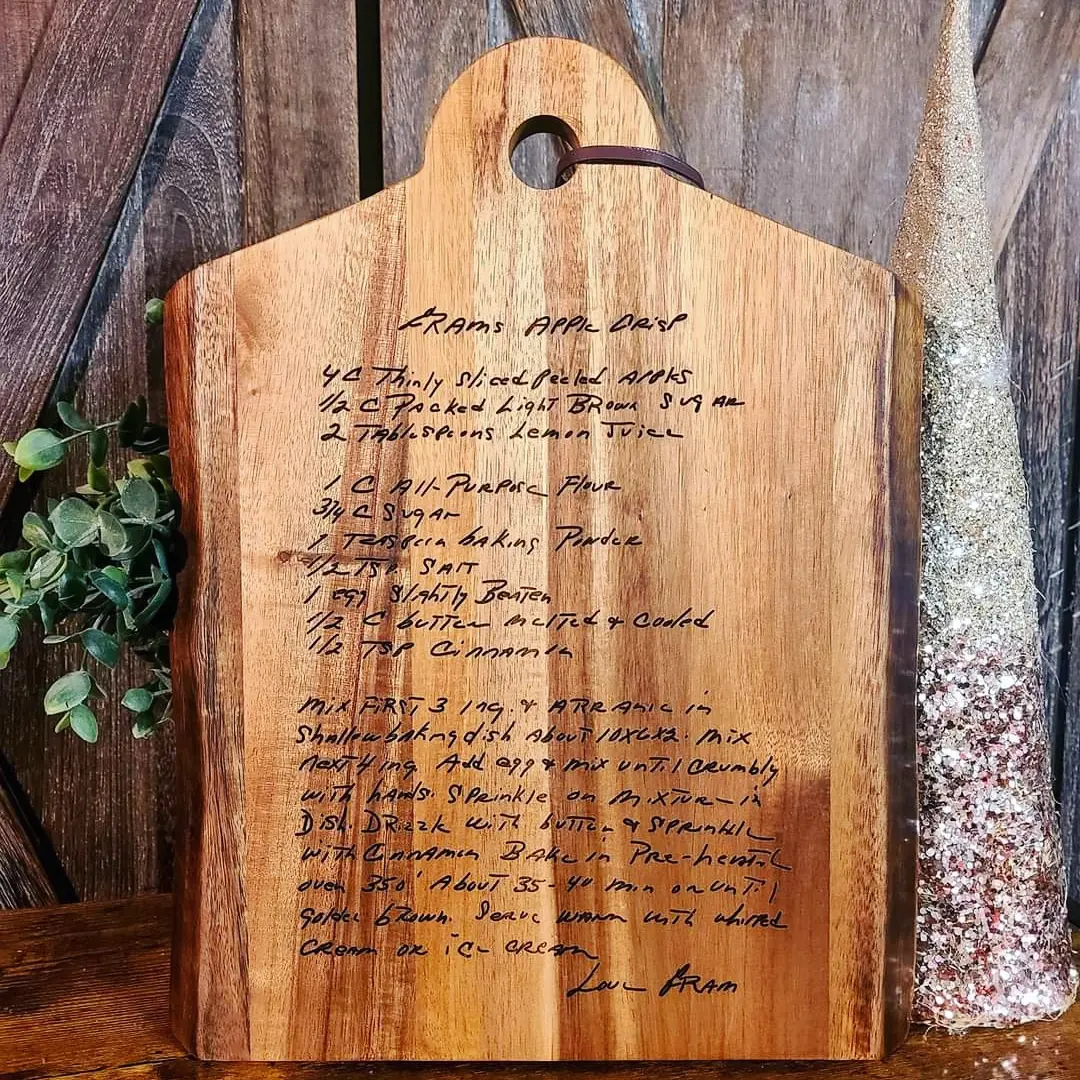 Grams Apple Crisp
4 C Thinly Sliced Peeled Apples
1/2 C Packed Light Brown Sugar
2 Tablespoons Lemon Juice
1 C All-Purpose Flour
3/4 C Sugar
1 Teaspoon baking Powder
1/2 Tsp Salt
1 egg Slightly Beaten
1/2 C butter melted & cooled
1/2 Tsp Cinnamon
Mix First 3 ing. & Arrange in
Shallow baking dish About 10x6x2. Mix
next 4 ing Add egg & mix until crumbly
with hands. Sprinkle on Mixture in
Dish. Drizzle with butter & Sprinkle
with Cinnamon Bake in Pre-heated
oven 350° About 35-40 min or until
golden brown. Serve warm with whipped
cream or ice cream
Love Gram